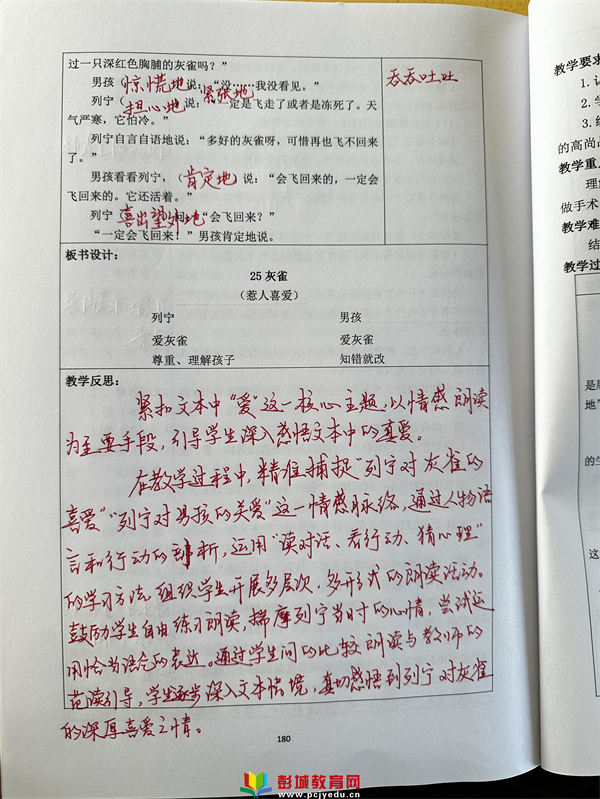 过一只深红色胸脯的灰雀吗？”
男孩（惊慌地说：“没……我没看见。”
紧张地
吞吞吐吐
列宁（担心地说：“一定是飞走了或者是冻死了。天
气严寒，它怕冷。”
列宁自言自语地说：“多好的灰雀呀，可惜再也飞不回来
了。”
男孩看看列宁，（肯定地 说：“会飞回来的，一定会
飞回来的。它还活着。”
列宁 喜出望外地 问：“会飞回来？”
“一定会飞回来！”男孩肯定地说。
板书设计：
25 灰雀
（惹人喜爱）
列宁 男孩
爱灰雀 爱灰雀
尊重、理解孩子 知错就改
教学反思：
紧扣文本中“爱”这一核心主题，以情感朗读
为主要手段，引导学生深入感悟文本中的真爱。
在教学过程中，精准捕捉“列宁对灰雀的
喜爱”“列宁对男孩的关爱”这一情感脉络，通过人物语
言和行动的剖析，运用“读对话、看行动、猜心理”
的学习方法，组织学生开展多层次，多形式的朗读活动。
鼓励学生自由练习朗读，揣摩列宁当时的心情，尝试运
用恰当语气的表达。通过学生间的比较朗读与教师的
范读引导，学生逐步深入文本情境，真切感悟到列宁对灰雀
的深厚喜爱之情。
180
教学要求
1.
2.
3.
的高尚
教学重
理
做手术
教学难
结
教学过
是
地”
的生
这
彭城教育网
www.pcjyedu.cn